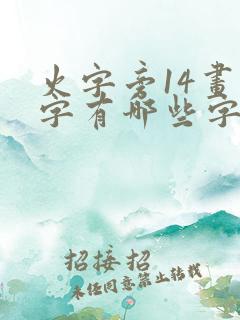 火字旁14畫
字有哪些字
招接招
未任同意禁止转载